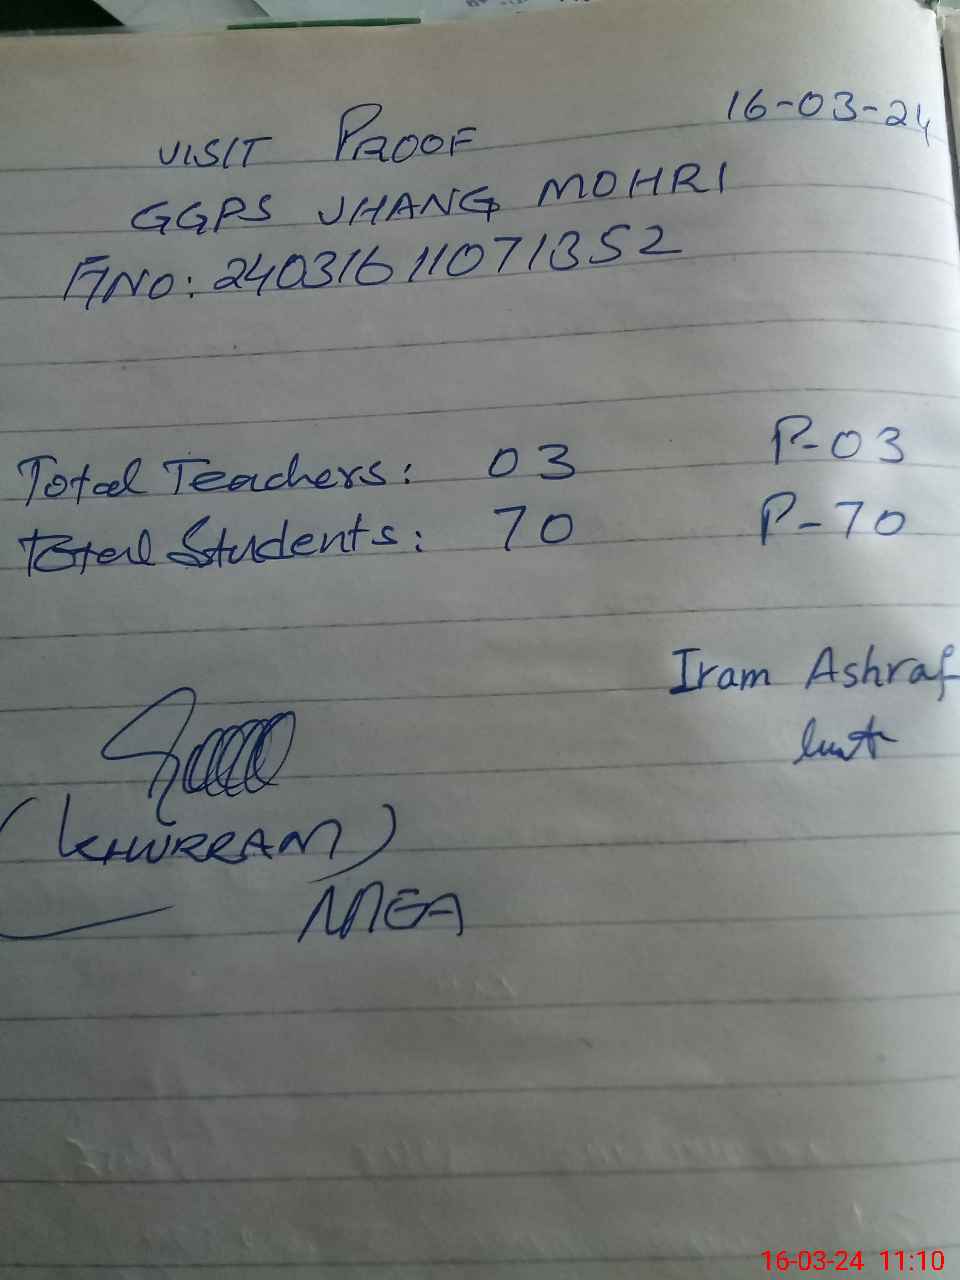 16-03-24
VISIT PROOF
GGPS JHANG MOHRI
A NO: 24031611071352
Total Teachers: 03 P-03
Total Students: 70 P-70
Iram Ashraf
(KHURRAM)
MEA
16-03-24 11:10